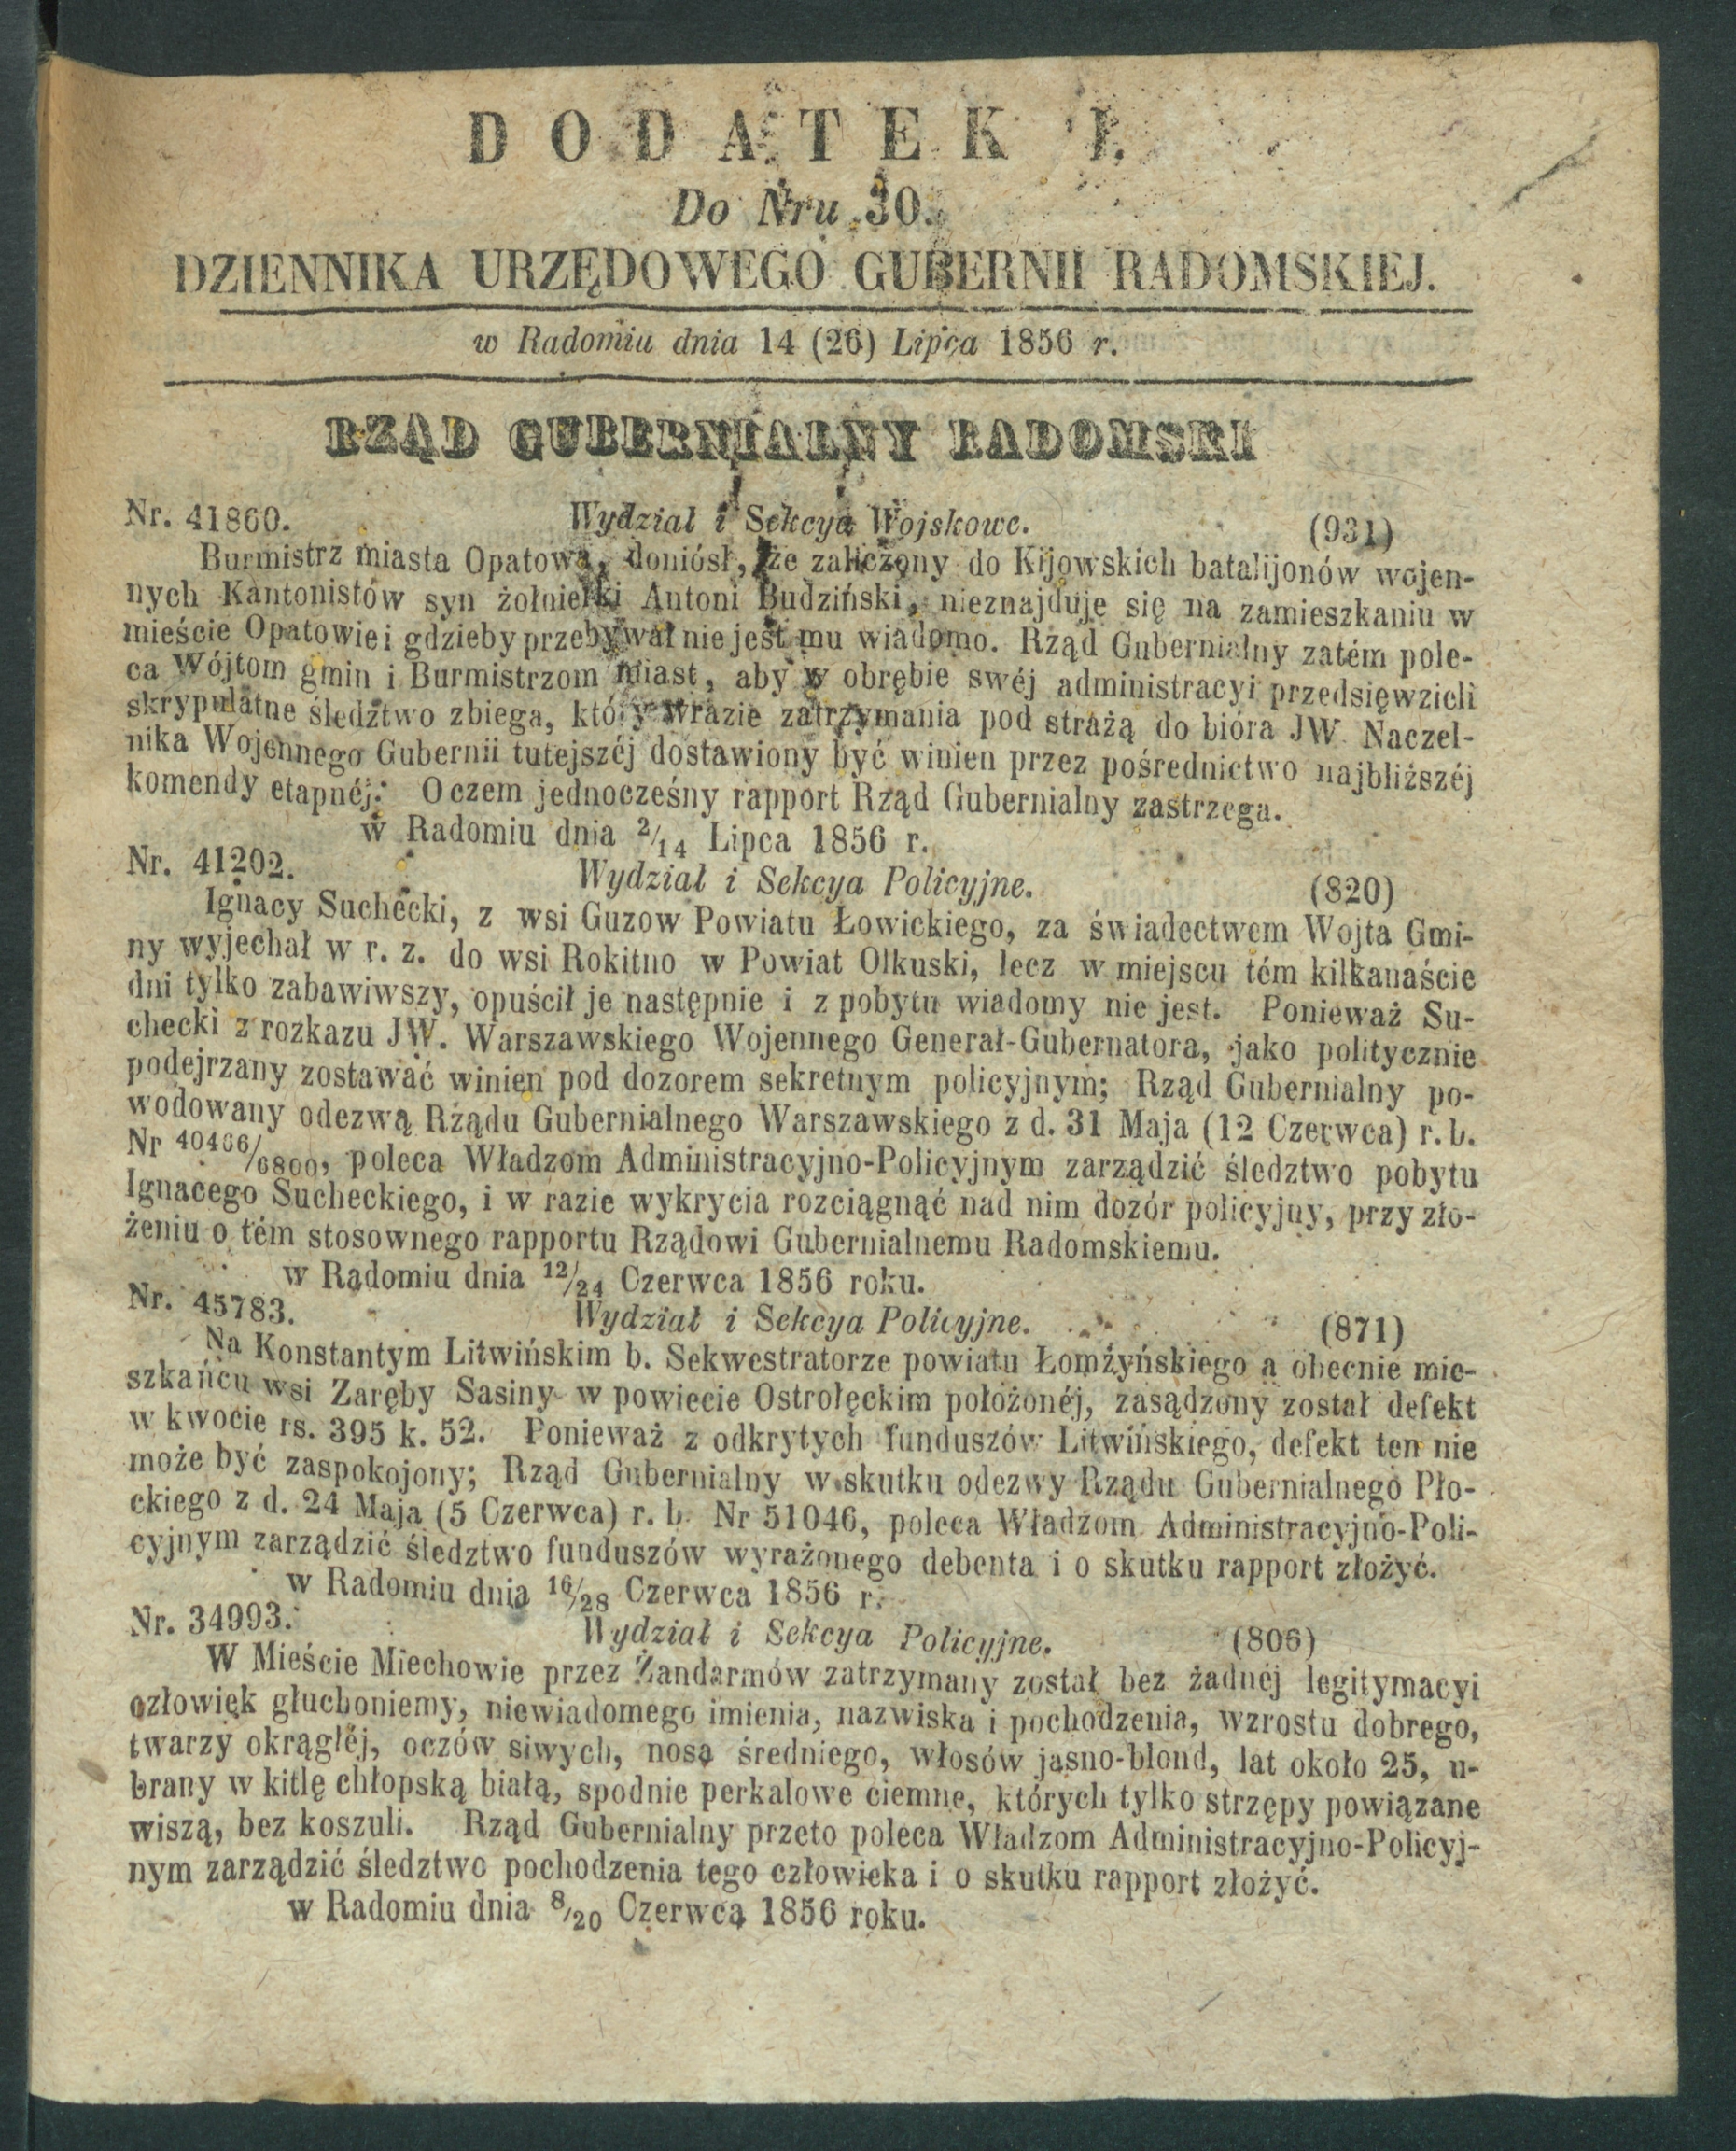 DODATEK I.
Do Nru 30.
DZIENNIKA URZĘDOWEGO GUBERNII RADOMSKIEJ.
w Radomiu dnia 14 (26) Lipca 1856 r.
RZĄD GUBERNIALNY RADOMSKI
Nr. 41860. Wydział i Sekcya Wojskowe. (931)
Burmistrz miasta Opatowa, doniósł, że zaliczony do Kijowskich batalijonów wojen-
nych Kantonistów syn żołnierki Antoni Budziński, nieznajduje się na zamieszkaniu w
mieście Opatowie i gdzieby przebywał nie jest mu wiadomo. Rząd Gubernialny zatém pole-
ca Wójtom gmin i Burmistrzom miast, aby w obrębie swéj administracyi przedsięwzieli
skrypulatne śledztwo zbiega, który w razie zatrzymania pod strażą do bióra JW. Naczel-
nika Wojennego Gubernii tutejszéj dostawiony być winien przez pośrednictwo najbliższéj
komendy etapnéj. O czem jednocześny rapport Rząd Gubernialny zastrzega.
w Radomiu dnia 2/14 Lipca 1856 r.
Nr. 41202. Wydział i Sekcya Policyjne. (820)
Ignacy Suchecki, z wsi Guzow Powiatu Łowickiego, za świadectwem Wojta Gmi-
ny wyjechał w r. z. do wsi Rokitno w Powiat Olkuski, lecz w miejscu tém kilkanaście
dni tylko zabawiwszy, opuścił je następnie i z pobytu wiadomy nie jest. Ponieważ Su-
checki z rozkazu JW. Warszawskiego Wojennego Generał-Gubernatora, jako politycznie
podejrzany zostawać winien pod dozorem sekretnym policyjnym; Rząd Gubernialny po-
wodowany odezwą Rządu Gubernialnego Warszawskiego z d. 31 Maja (12 Czerwca) r. b.
Nr 40466/6800, poleca Władzom Administracyjno-Policyjnym zarządzić śledztwo pobytu
Ignacego Sucheckiego, i w razie wykrycia rozciągnąć nad nim dozór policyjny, przy zło-
żeniu o tém stosownego rapportu Rządowi Gubernialnemu Radomskiemu.
w Radomiu dnia 12/24 Czerwca 1856 roku.
Nr. 45783. Wydział i Sekcya Policyjne. (871)
Na Konstantym Litwińskim b. Sekwestratorze powiatu Łomżyńskiego a obecnie mie-
szkańcu wsi Zaręby Sasiny w powiecie Ostrołęckim położonéj, zasądzony został defekt
w kwocie rs. 395 k. 52. Ponieważ z odkrytych funduszów Litwińskiego, defekt ten nie
może być zaspokojony; Rząd Gubernialny w skutku odezwy Rządu Gubernialnego Pło-
ckiego z d. 24 Maja (5 Czerwca) r. b. Nr 51046, poleca Władzom Administracyjno-Poli-
cyjnym zarządzić śledztwo funduszów wyrażonego debenta i o skutku rapport złożyć.
w Radomiu dnia 16/28 Czerwca 1856 r.
Nr. 34993. Wydział i Sekcya Policyjne. (806)
W Mieście Miechowie przez Żandarmów zatrzymany został bez żadnéj legitymacyi
człowiek głuchoniemy, niewiadomego imienia, nazwiska i pochodzenia, wzrostu dobrego,
twarzy okrągłéj, oczów siwych, nosa średniego, włosów jasno-blond, lat około 25, u-
brany w kitlę chłopską białą, spodnie perkalowe ciemne, których tylko strzępy powiązane
wiszą, bez koszuli. Rząd Gubernialny przeto poleca Władzom Administracyjno-Policyj-
nym zarządzić śledztwo pochodzenia tego człowieka i o skutku rapport złożyć.
w Radomiu dnia 8/20 Czerwca 1856 roku.